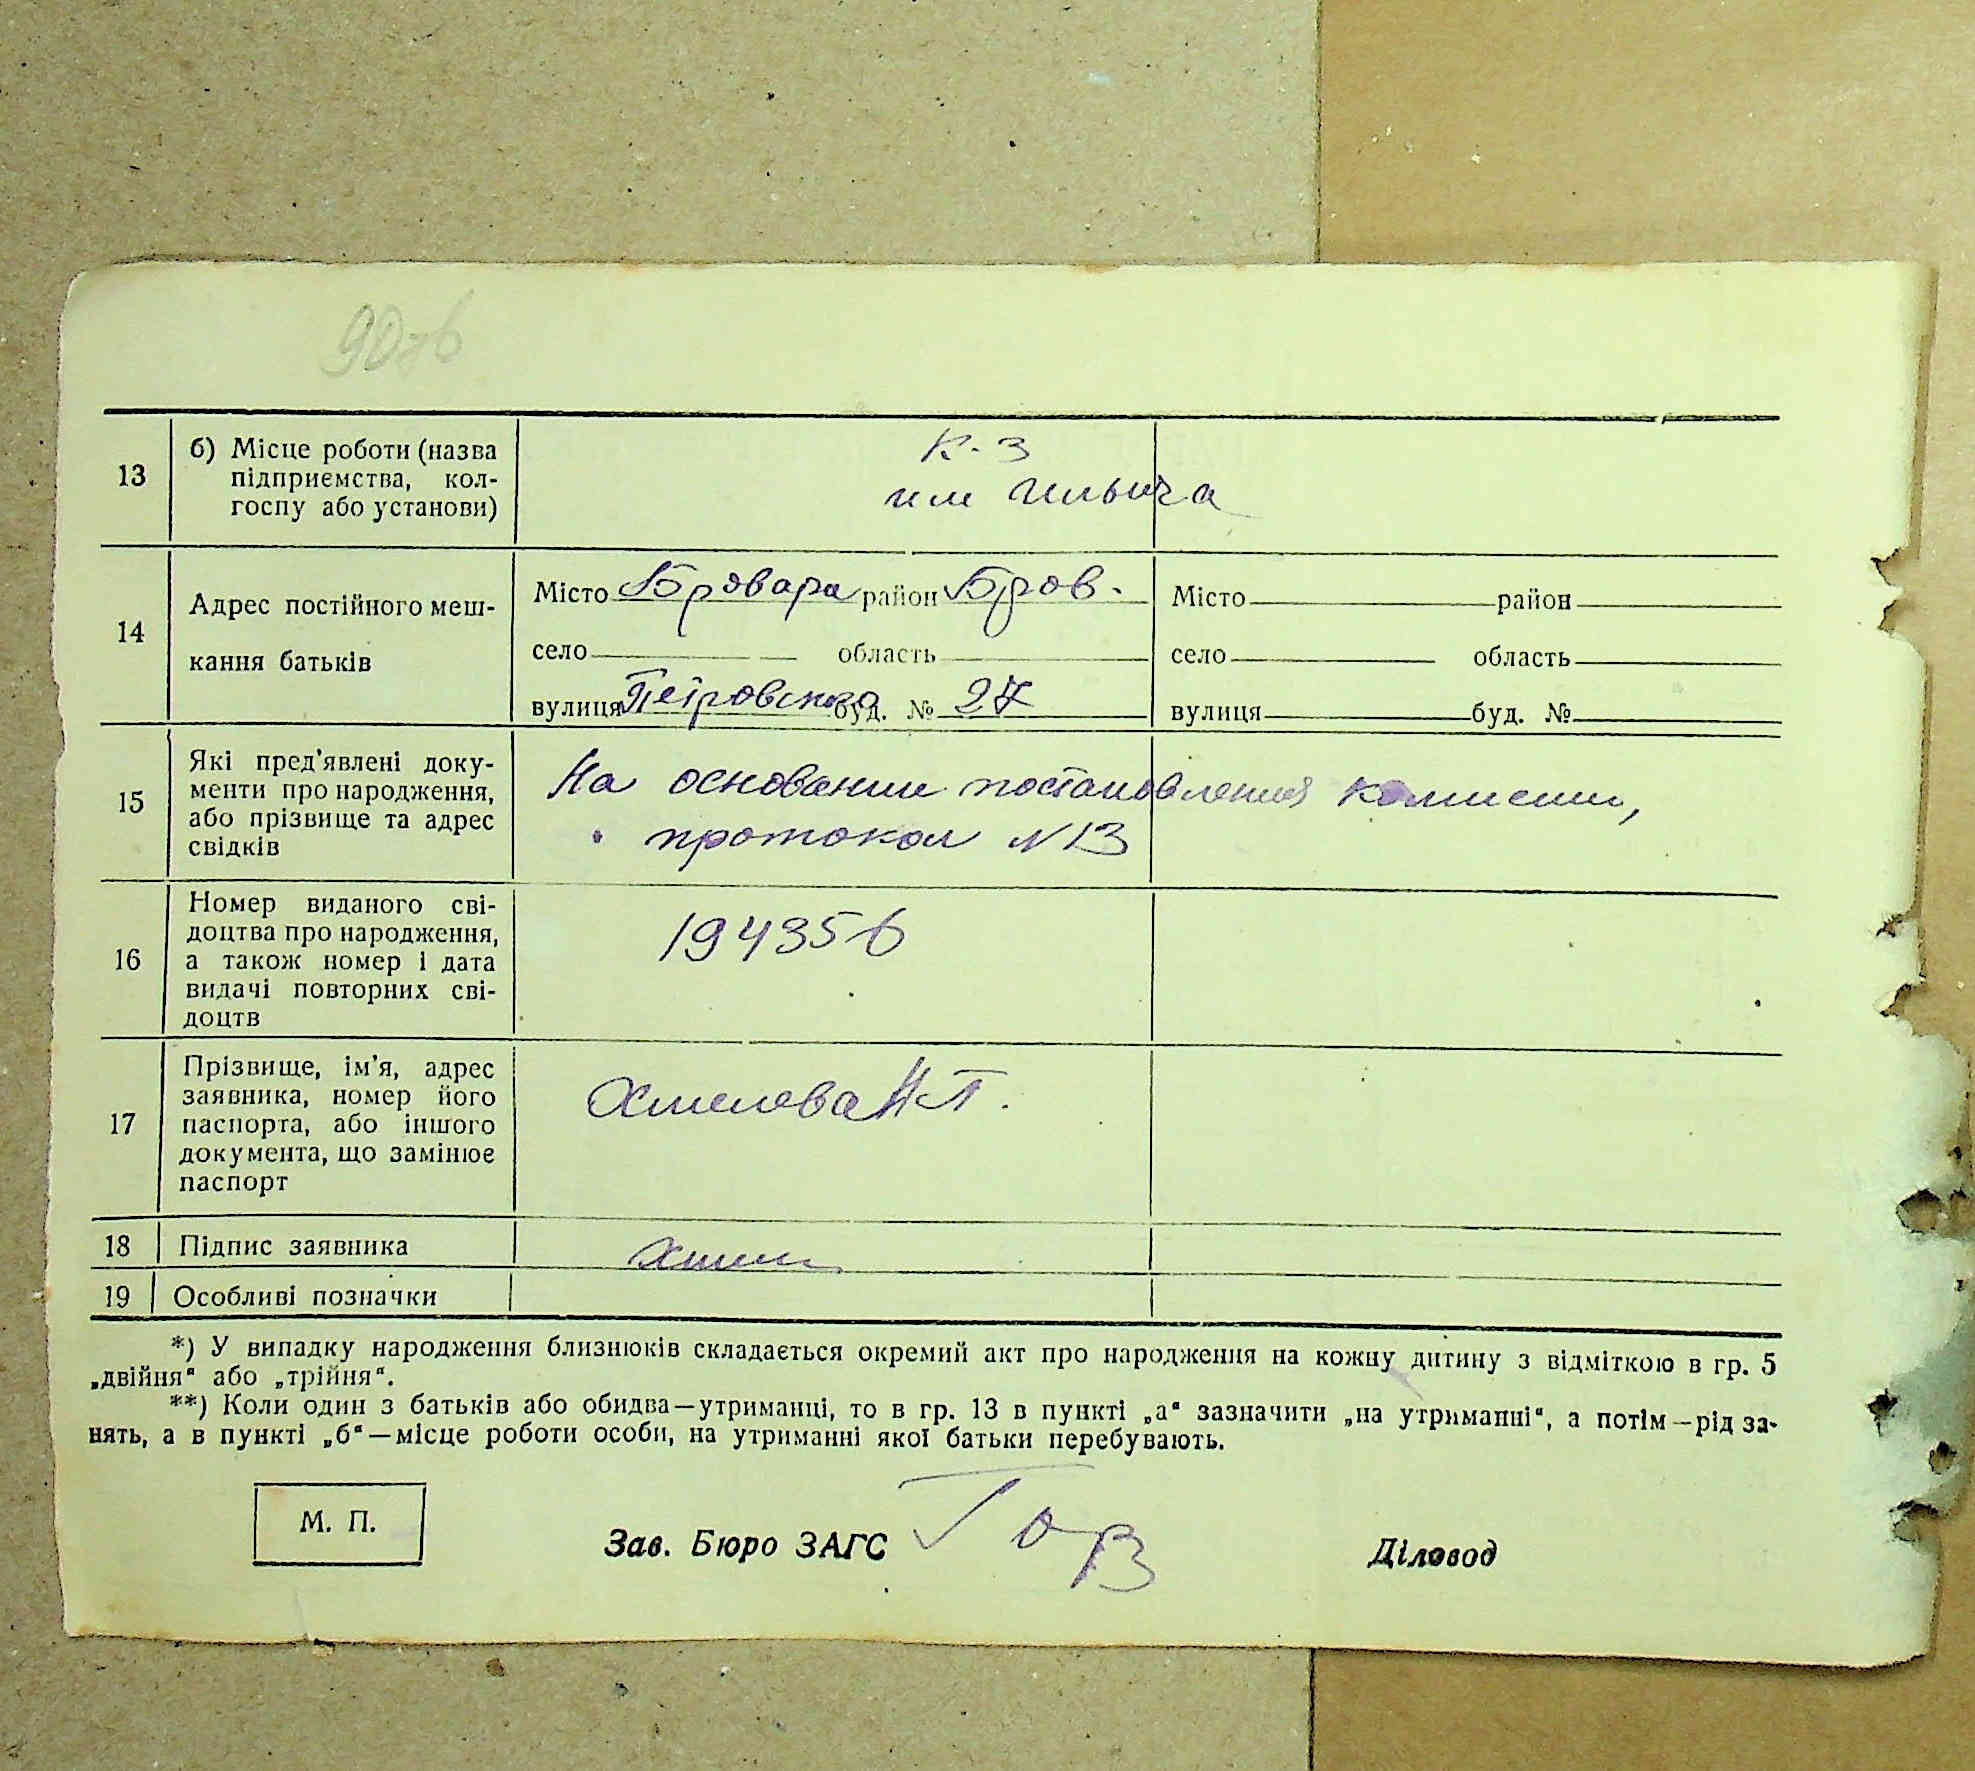 90зв
13
б) Місце роботи (назва
підприємства, кол-
госпу або установи)
К-з
им Ильича
14
Адрес постійного меш-
кання батьків
Місто Бровара район Бров.
село область
вулиця Петровского буд. № 27
Місто район
село область
вулиця буд. №
15
Які пред'явлені доку-
менти про народження,
або прізвище та адрес
свідків
На основании постановления комиссии,
протокол N 13
16
Номер виданого сві-
доцтва про народження,
а також номер і дата
видачі повторних сві-
доцтв
194356
17
Прізвище, ім'я, адрес
заявника, номер його
паспорта, або іншого
документа, що замінює
паспорт
Хмелева Н Т.
18 Підпис заявника
Хмел
19 Особливі позначки
*) У випадку народження близнюків складається окремий акт про народження на кожну дитину з відміткою в гр. 5
„двійня“ або „трійня“.
**) Коли один з батьків або обидва—утриманці, то в гр. 13 в пункті „а“ зазначити „на утриманні“, а потім—рід за-
нять, а в пункті „б“—місце роботи особи, на утриманні якої батьки перебувають.
М. П.
Зав. Бюро ЗАГС
Діловод